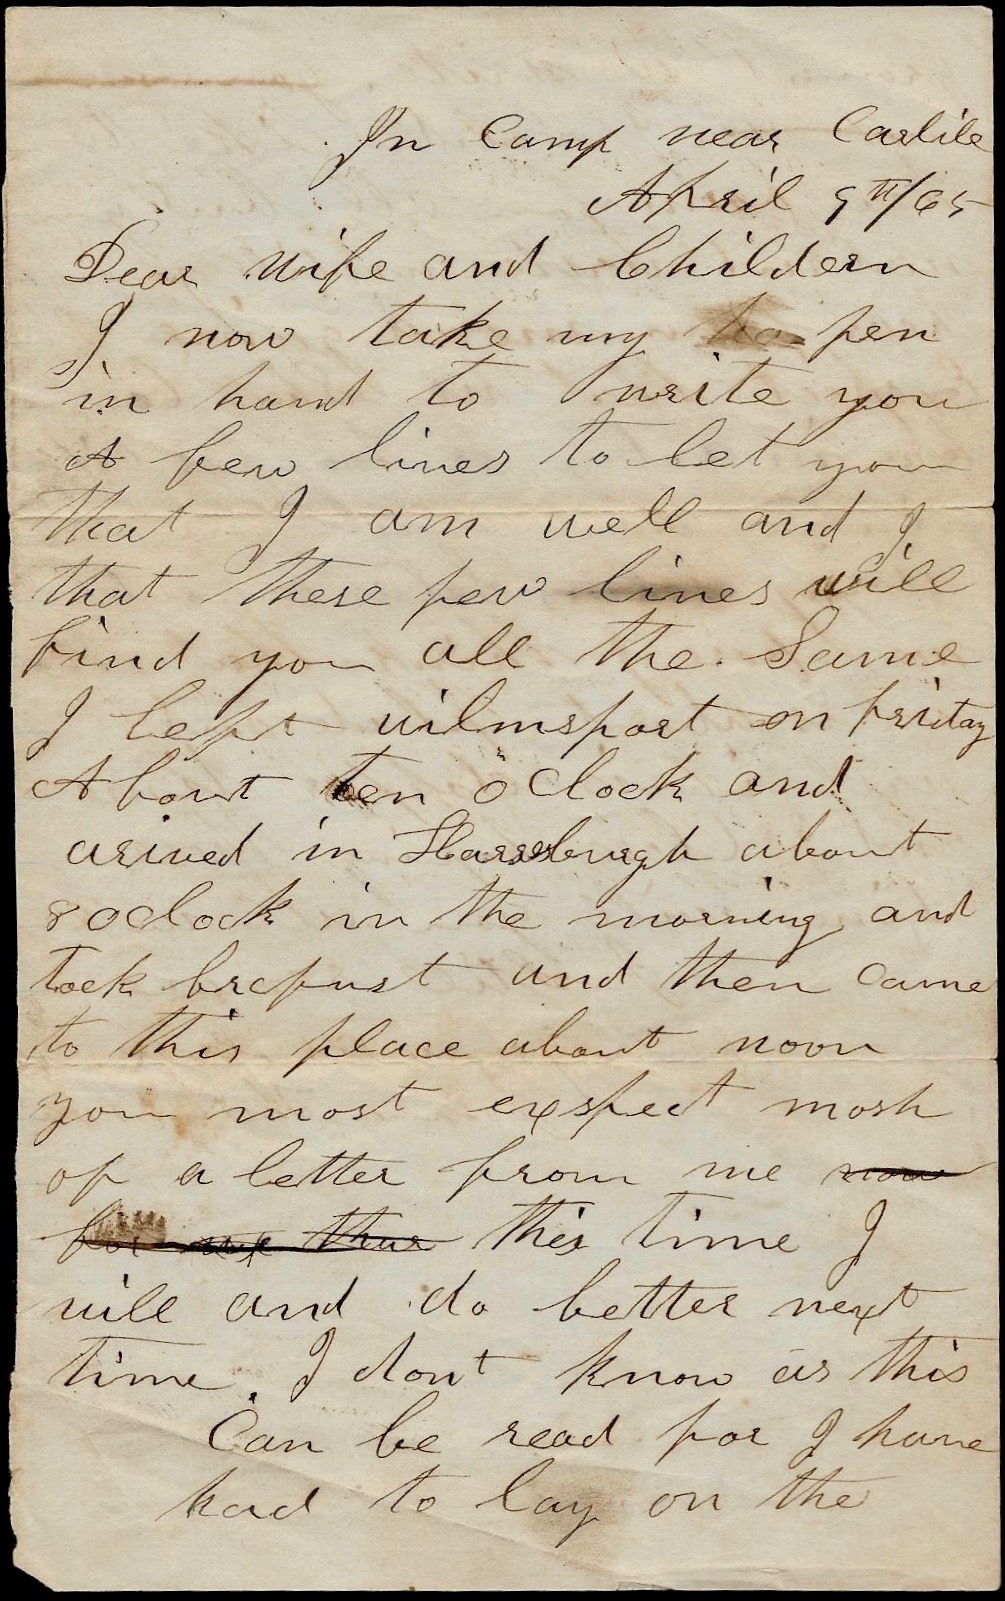 In Camp near Carlile
April 9th/65
Dear Wife and Childern
I now take my pen
in hand to write you
A few lines to let you
that I am well and I
that these few lines will
find you all the Same
I left wilmsport on friday
About ten oClock and
arived in Harrsburgh about
8 oclock in the morning and
took brefust and then came
to this place about noon
you most exspect mosh
of a letter from me now
for thus this time I
will and do better next
time. I dont know as this
Can be read for I have
had to lay on the